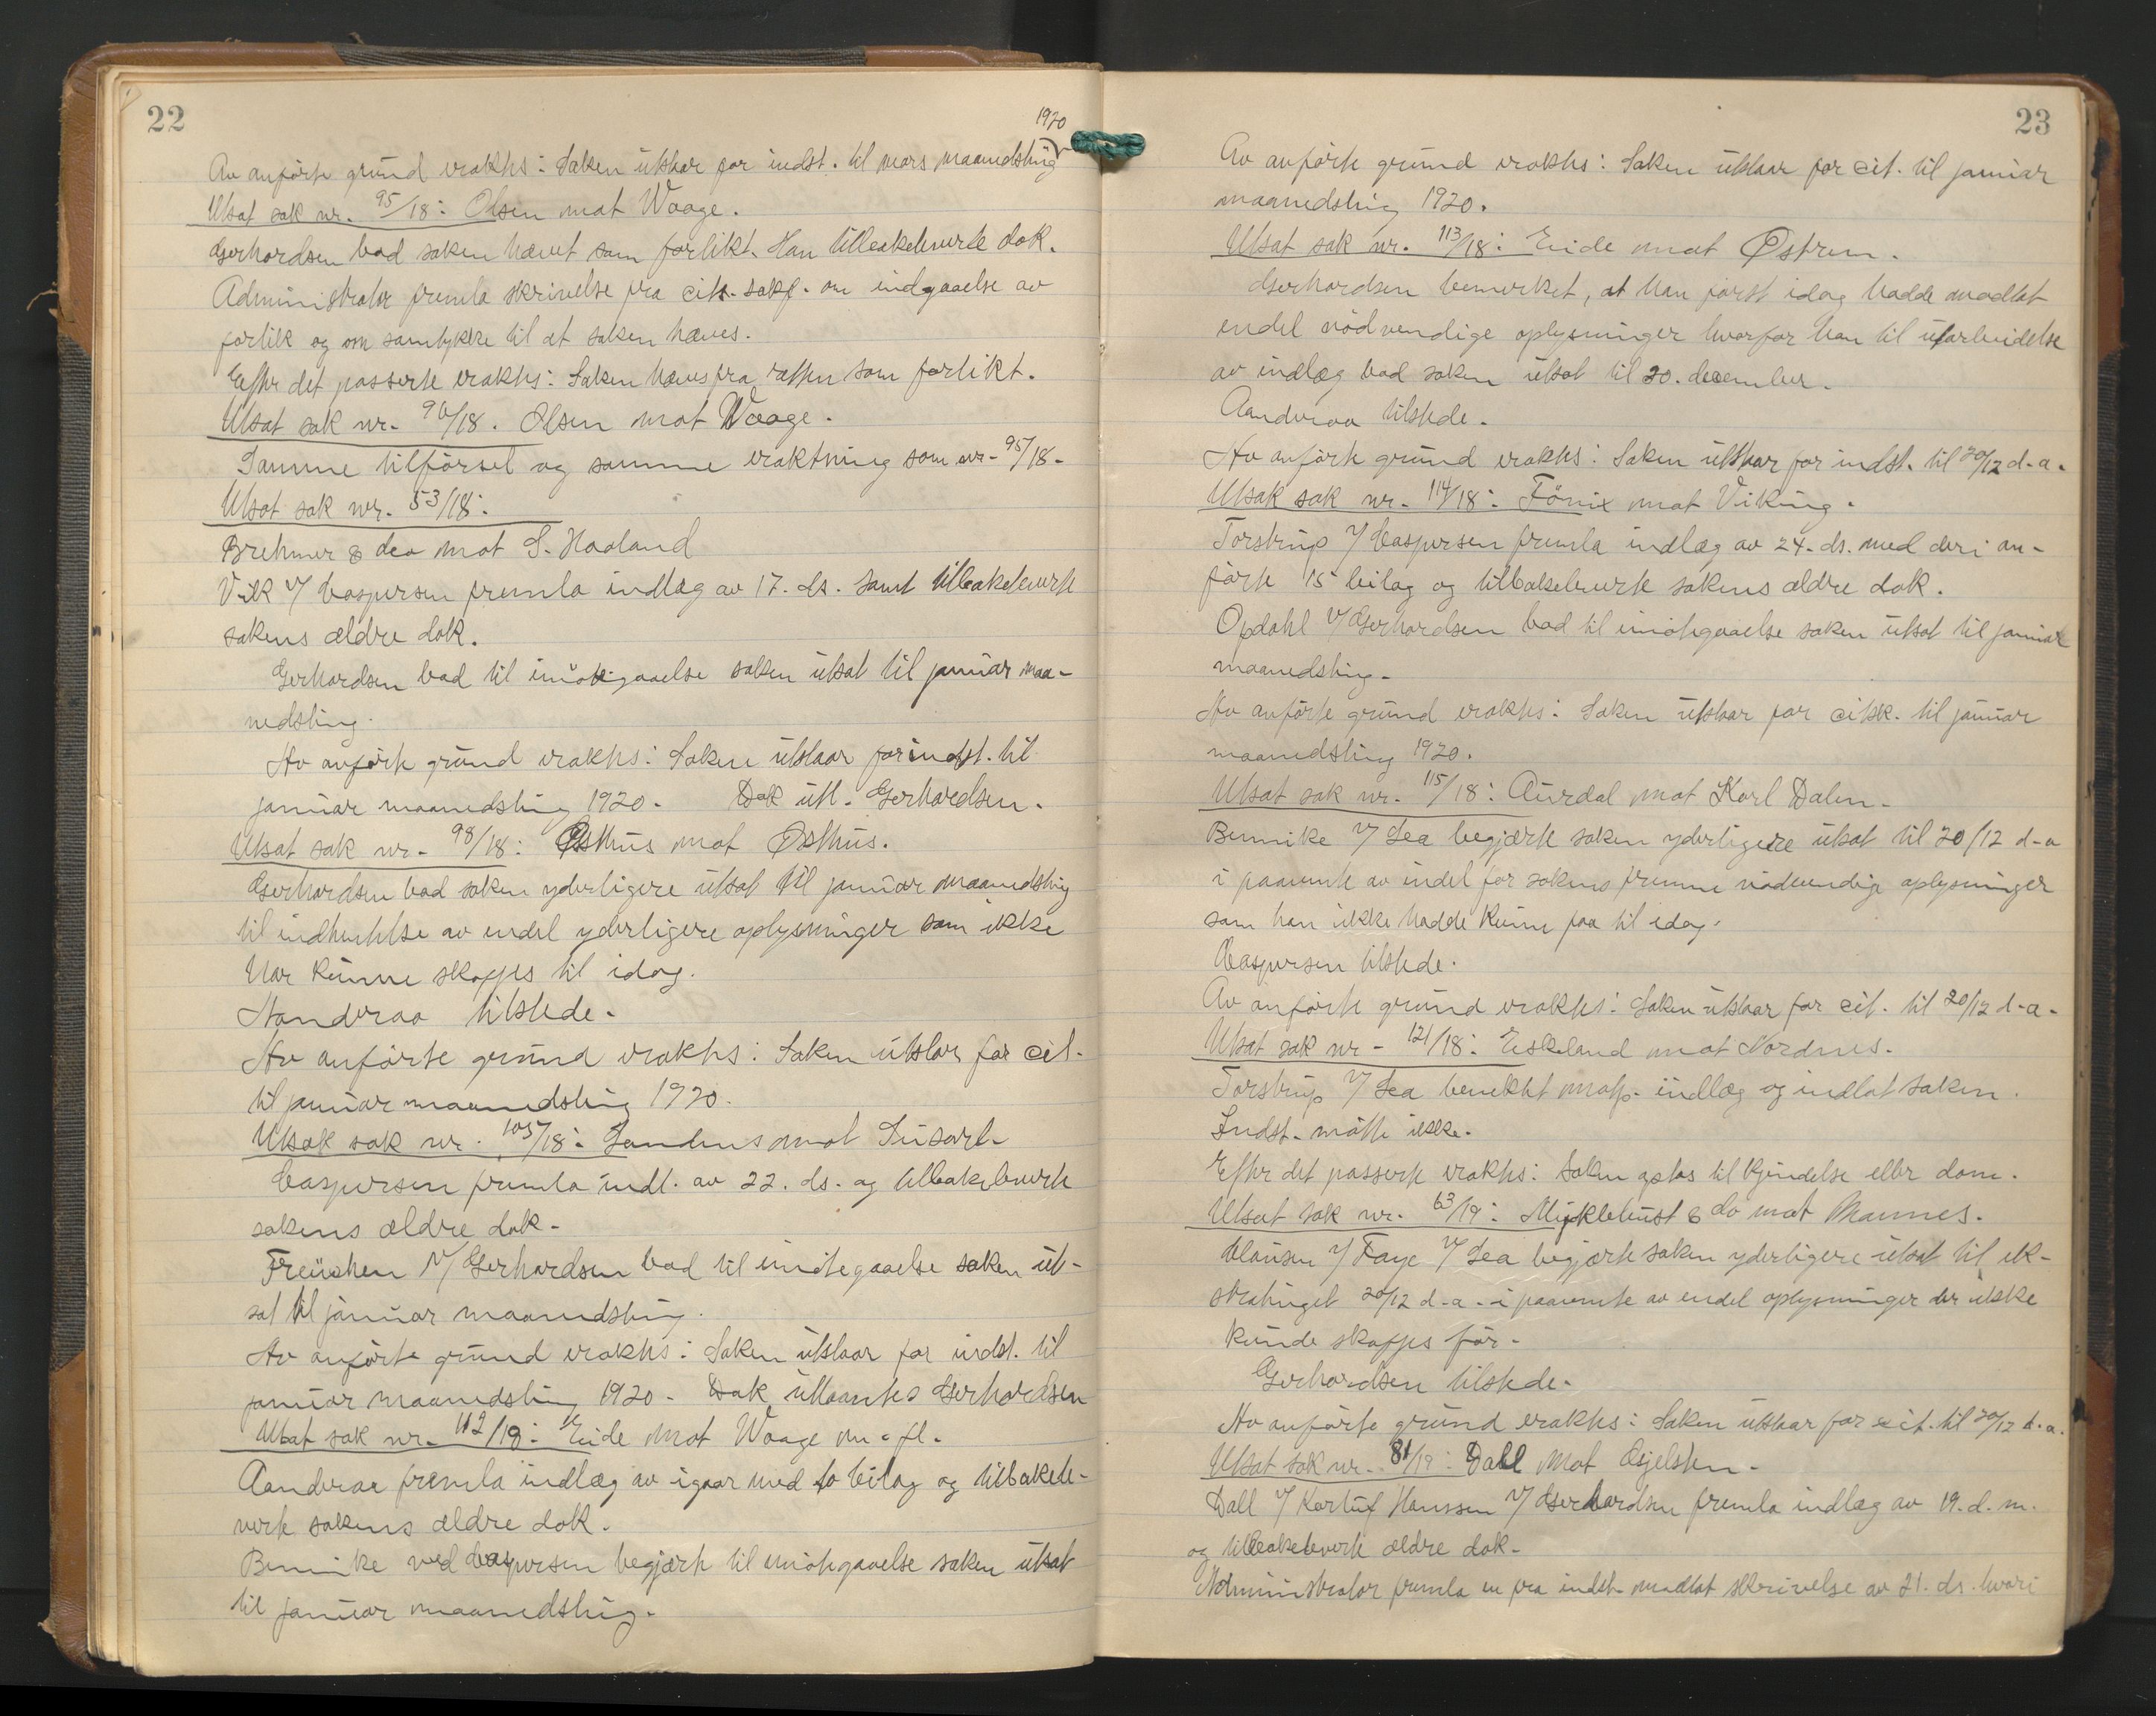 22
1920
Av anførte grund eraktes: Saken utstaar for indst. til mars maanedsting
Utsat sak nr. 95/18: Olsen mot Waage.
Gerhardsen bad saken hævet som forlikt. Han tilbakeleverte dok.
Administrator fremla skrivelse fra cit. sakf. om indgaaelse av
forlik og om samtykke til at saken hæves.
Efter det passerte eraktes: Saken hæves fra retten som forlikt.
Utsat sak nr. 96/18. Olsen mot Waage.
Samme tilførsel og samme eraktning som nr. 95/18.
Utsat sak nr. 53/18:
Brehmer & Co mot S. Haaland
Vik v/ Caspersen fremla indlæg av 17. ds. samt tilbakeleverte
sakens ældre dok.
Gerhardsen bad til imøtegaaelse saken utsat til januar maa-
nedsting.
Av anførte grund eraktes: Saken utstaar for indst. til
januar maanedsting 1920. Dok utl. Gerhardsen.
Utsat sak nr. 98/18: Østhus mot Østhus.
Gerhardsen bad saken yderligere utsat til januar maanedsting
til indhentelse av endel yderligere oplysninger som ikke
har kunne skaffes til idag.
Aanderaa tilstede.
Av anførte grund eraktes: Saken utstar for cit.
til januar maanedsting 1920.
Utsat sak nr. 105/18: Sandnes mot
Caspersen fremla indl. av 22. ds. og tilbakeleverte
sakens ældre dok.
Freuchen v/ Gerhardsen bad til imøtegaaelse saken ut-
sat til januar maanedsting.
Av anførte grund eraktes: Saken utstaar for indst. til
januar maanedsting 1920. Dok utlaantes Gerhardsen
Utsat sak nr. 112/18: Eide mot Waage m. fl.
Aanderaa fremla indlæg av igaar med to bilag og tilbakele-
verte sakens ældre dok.
Bennike ved Caspersen begjærte til imøtegaaelse saken utsat
til januar maanedsting.
23
Av anførte grund eraktes: Saken utstaar for cit. til januar
maanedsting 1920.
Utsat sak nr. 113/18: Eide mot Østrem.
Gerhardsen bemerket, at han først idag hadde modtat
endel nødvendige oplysninger hvorfor han til utarbeidelse
av indlæg bad saken utsat til 20. december.
Aanderaa tilstede.
Av anførte grund eraktes: Saken utstaar for indst. til 20/12 d.a.
Utsat sak nr. 114/18: Fønix mot Viking.
Torstrup v/ Caspersen fremla indlæg av 24. ds. med deri an-
førte 15 bilag og tilbakeleverte sakens ældre dok.
Opdahl v/ Gerhardsen bad til imøtegaaelse saken utsat til januar
maanedsting.
Av anførte grund eraktes: Saken utstaar for citk. til januar
maanedsting 1920.
Utsat sak nr. 115/18: Aurdal mot Karl Dalen.
Bennike v/ Lea begjærte saken yderligere utsat til 20/12 d.a
i paavente av endel for sakens fremme nødvendig oplysninger
som han ikke hadde kunne faa til idag.
Caspersen tilstede.
Av anførte grund eraktes: Saken utstaar for cit. til 20/12 d.a.
Utsat sak nr. 121/18: Eskeland mot Nordnes.
Torstrup v/ Lea benektet motp. indlæg og indlot saken.
Indst. møtte ikke.
Efter det passerte eraktes: Saken optas til kjendelse eller dom.
Utsat sak nr. 63/19: Myklebust & Co mot Mannes.
Clausen v/ Faye v/ Lea begjærte saken yderligere utsat til ek-
stratinget 20/12 d.a. i paavente av endel oplysninger der ikke
kunde skaffes før.
Gerhardsen tilstede.
Av anførte grund eraktes: Saken utstaar for cit. til 20/12 d.a.
Utsat sak nr. 81/19: Dall mot Esjelsten.
Dall v/ Hanssen v/ Gerhardsen fremla indlæg av 19. d.m.
og tilbakeleverte ældre dok.
Administrator fremla en fra indst. modtat skrivelse av 21. ds. hvori